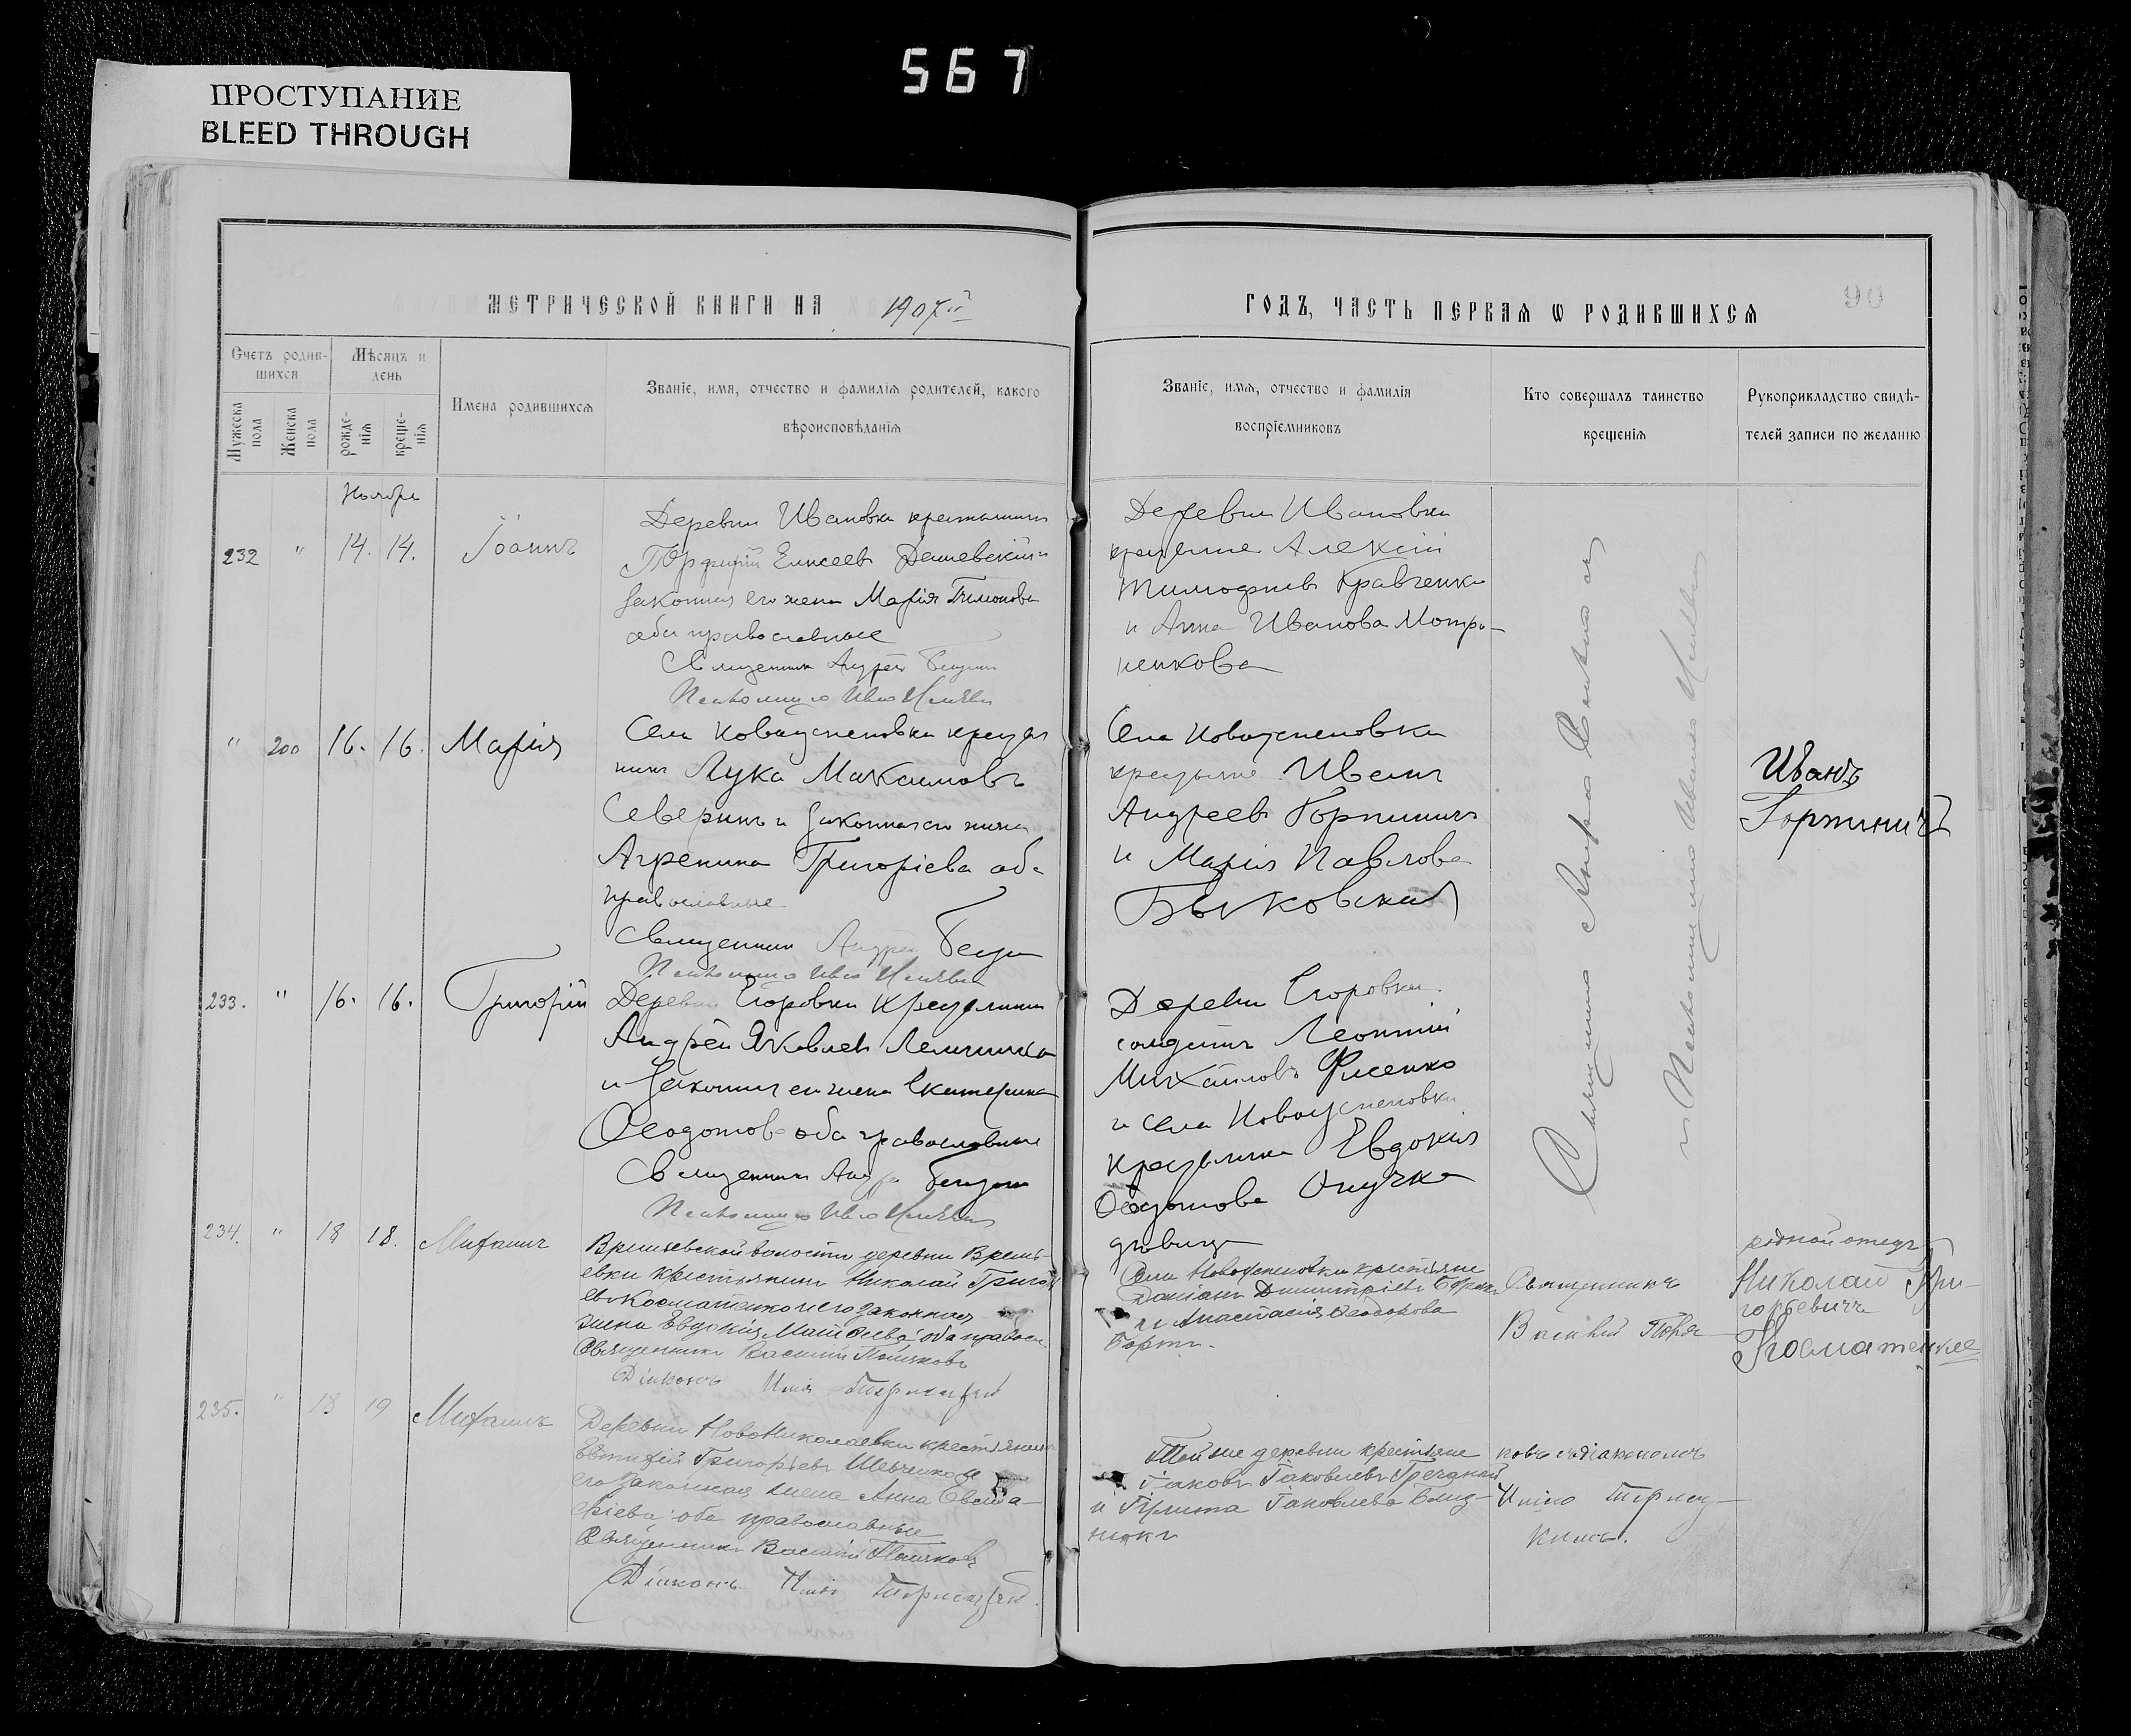 567
ПРОСТУПАНИЕ
BLEED THROUGH
МЕТРИЧЕСКОЙ КНИГИ НА 1907й
ГОДЪ, ЧАСТЬ ПЕРВАЯ Ѡ РОДИВШИХСЯ
90
Счетъ родив-
шихся
Мужеска
пола
Женска
пола
Мѣсяцъ и
день
рожде-
нія
креще-
нія
Имена родившихся
Званіе, имя, отчество и фамилія родителей, какого
вѣроисповѣданія
Званіе, имя, отчество и фамилія
воспріемниковъ
Кто совершалъ таинство
крещенія
Рукоприкладство свидѣ-
телей записи по желанію
Ноября
232 " 14. 14. Іоаннъ
Деревни Ивановки крестьянинъ
Порфирій Елисеевъ Дашевскій и
законная его жена Марія
оба православные
Священникъ Андрей
Псаломщикъ
Деревни Ивановки
крестьяне Алексій
Тимофеевъ Кравченко
и Анна Ивановa Мотро-
ненкова
" 200 16. 16. Марія
Села Новоуспеновки крестья
нинъ Лука Максимовъ
Северинъ и законная его жена
Агрепина Григоріева оба
православные
Священникъ Андрей
Псаломщикъ
Села Новоуспеновки
крестьяне Иванъ
Андреевъ Горпиничъ
и Марія Павлова
Быковская
Иванъ
Горпиничъ
233. " 16. 16. Григорій
Деревни Егоровки крестьянинъ
Андрей Яковлевъ
и законная его жена Екатерина
Ѳеодотова оба православные
Священникъ Андрей
Псаломщикъ
Деревни Егоровки
солдатъ Леонтій
Михаиловъ Фисенко
и села Новоуспеновки
крестьянка Евдокія
Ѳеодотова Онучко
девица
234. " 18 18. Михаилъ
Времьевской волости деревни Времь-
евки крестьянинъ Николай Григорь
евъ Косматенко и его законная
жена Евдокія Матѳеева оба правосл
Священникъ Василій Поляковъ
Діаконъ Илія
Села Новоуспеновки крестьяне
Даміанъ Димитріевъ
и Анастасія Ѳеодорова
Священникъ
Василій Поля
родной отецъ
Николай Гри-
горьевичъ
Косматенко
235. " 18 19 Михаилъ
Деревни Новониколаевки крестьянинъ
Евтихій Григорьевъ Шевченко и
его законная жена Анна Евста-
фіева оба православные
Священникъ Василій Поляковъ
Діаконъ Илія
Той же деревни крестьяне
Іаковъ Іаковлевъ
и Іаковлева Близ-
нюки
ковъ съ діакономъ
Иліею